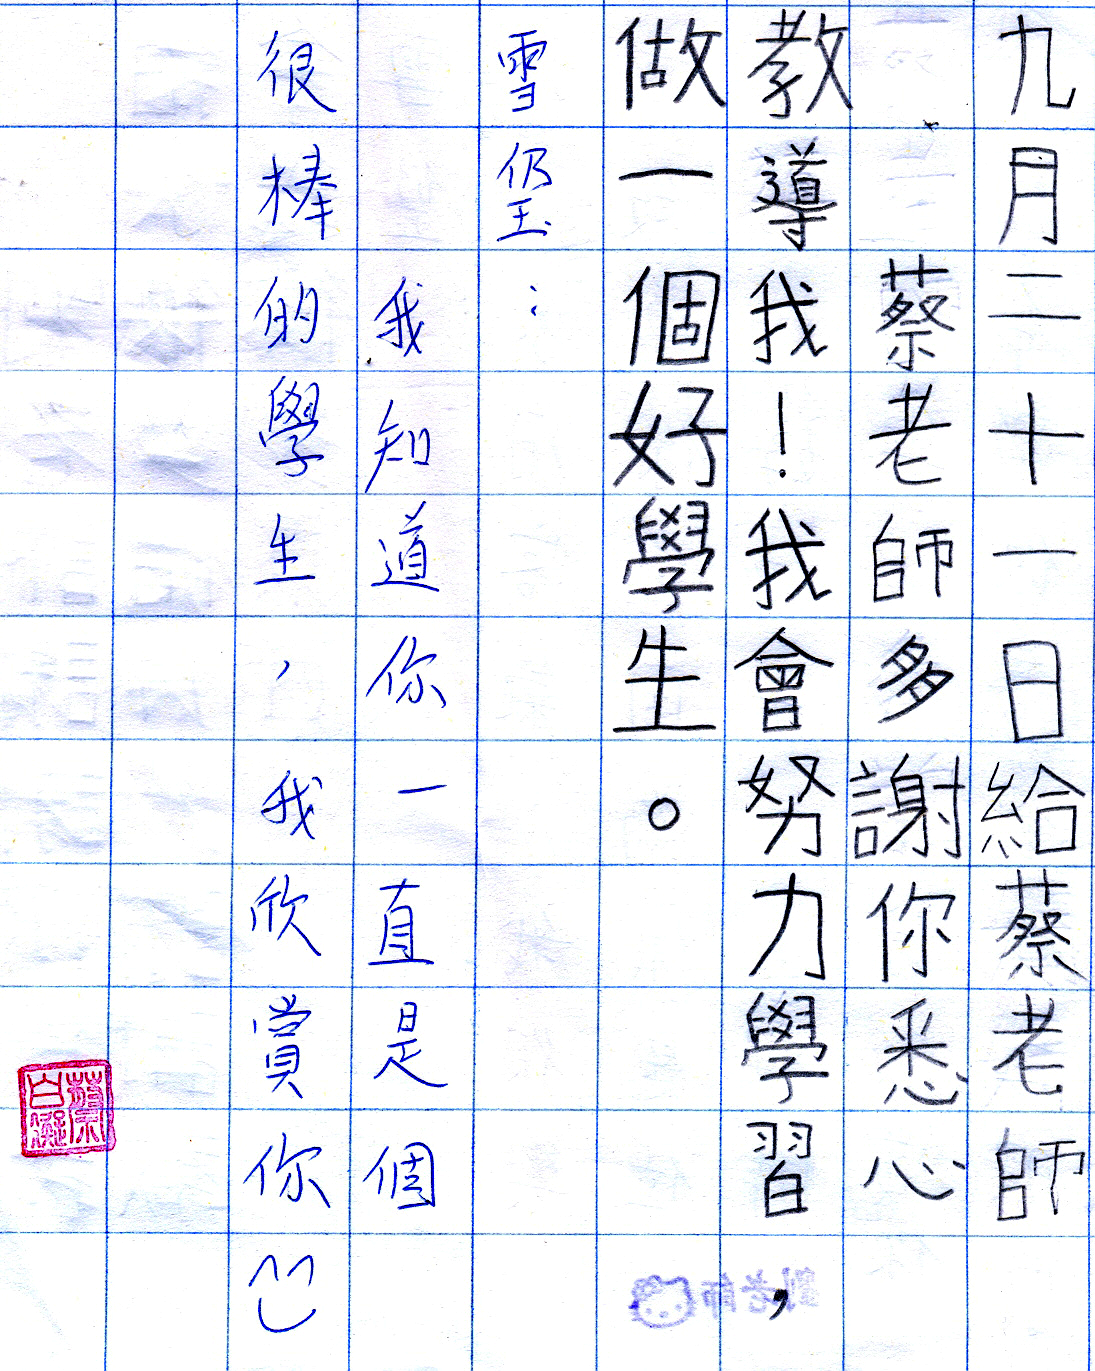 九月二十一日給蔡老師
蔡老師多謝你悉心
教導我！我會努力學習，
做一個好學生。
雪瑩：
我知道你一直是個
很棒的學生，我欣賞你
劉老師